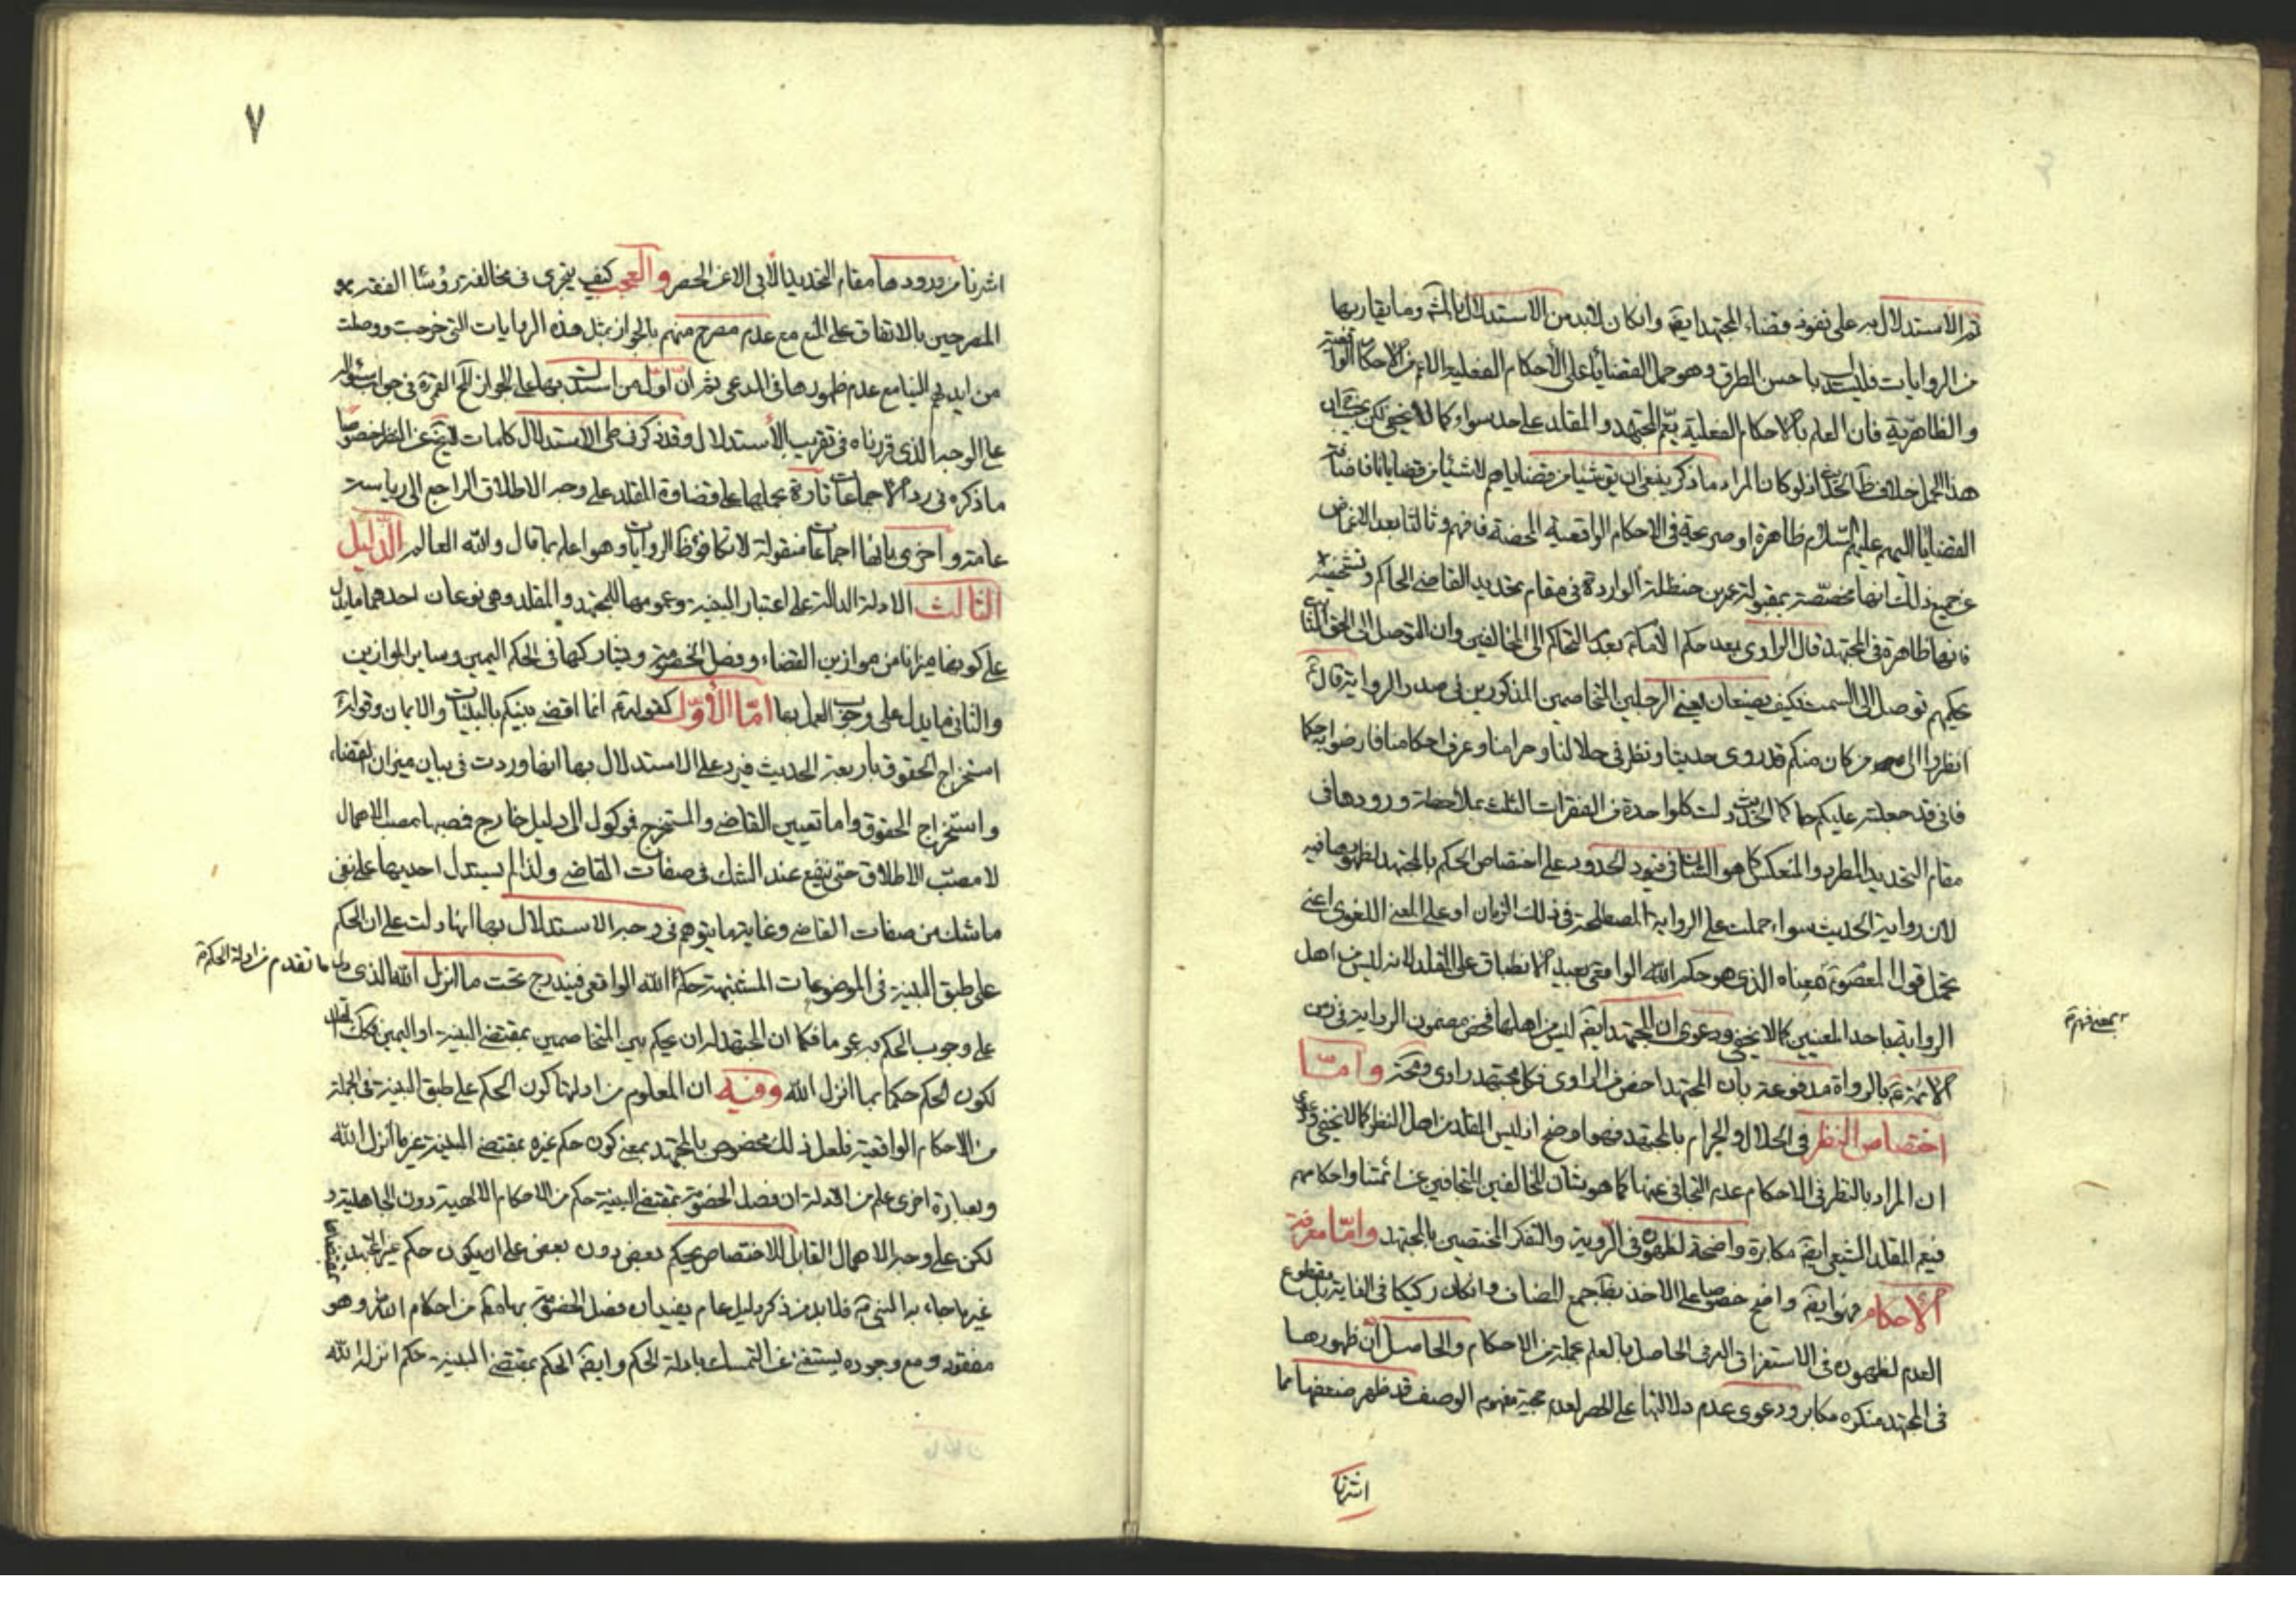 ثم الاستدلال به على نفوذ قضاء المجتهد ايضا وان كان لابد من الاستدلال بالمشهورة وما يقاربها
من الروايات فليستدل باحسن الطرق وهو حمل القضايا على الاحكام الفعلية الاعم من الاحكام الواقعية
والظاهرية فان العلم بالاحكام الفعلية يعم المجتهد والمقلد على حد سواء كما لا يخفى لكن
هذا الحمل خلاف اذ لو كان المراد ما ذكر ينبغي ان يق شيئا من قضاياهم لا شيئا من قضايانا فاضافة
القضايا اليهم عليهم السلام ظاهرة او صريحة في الاحكام الواقعية المحضة فافهم وثالثا بعد الاغماض
عن جميع ذلك انها مخصصة بمقبولة عمر بن حنظلة الواردة في مقام تحديد القاضي الحاكم وتشخيصه
فانها ظاهرة في المجتهد قال الراوي بعد حكم الامام بعد التحاكم الى المخالفين وان المتوصل الى الحق الثابت
بحكمهم توصل الى السحت فكيف يصنعان يعني الرجلين المتخاصمين المذكورين في صدر الرواية قال
انظروا الى من كان منكم قد روى حديثنا ونظر في حلالنا وحرامنا وعرف احكامنا فارضوا به حكما
فاني قد جعلته عليكم حاكما الحديث دلت كل واحدة من الفقرات الثلث بملاحظة ورودها في
مقام التحديد المطرد والمنعكس كما هو الشان في قيود الحدود على اختصاص الحكم بالمجتهد لظهورها فيه
لان رواية الحديث سواء حملت على الرواية المصطلحة في ذلك الزمان او على المعنى اللغوي اعني
تحمل قول المعصوم بمعناه الذي هو حكم الله الواقعي بعيد الانطباق على المقلد لانه ليس من اهل
الرواية باحد المعنيين كما لا يخفى ودعوى ان المجتهد ايضا ليس من اهلها فحض مضمون الرواية في زمن
بمعنى فهم
الائمة بالرواة مدفوعة بان المجتهد اخص من الراوي فكل مجتهد راوي وامّا
اختصاص النظر في الحلال والحرام بالمجتهد فهو اوضح اذ ليس المقلد من اهل النظر كما لا يخفى ودعوى
ان المراد بالنظر في الاحكام عدم التجافي عنها كما هو شان المخالفين المتجافين عن ائمتنا واحكامهم
فيعم المقلد الشيعي ايضا مكابرة واضحة لظهوره في الروية والتفكر المختصين بالمجتهد وامّا معرفة
الاحكام فهو ايضا واضح خصوصا على الاخذ بظاهر جمع المضاف وان كان ركيكا في الغاية بل مقطوع
العدم لظهوره في الاستغراق العرفي الحاصل بالعلم بجملة من الاحكام والحاصل ان ظهورها
في المجتهد منكره مكابر ودعوى عدم دلالتها على الحصر لعدم حجية مفهوم الوصف قد ظهر ضعفها مما
اشرنا
٧
اشرنا من ورودها مقام التحديد الآبي الا عن الحصر والعجب كيف يتجرى في مخالفة رؤساء الفقه
المصرحين بالاتفاق على المنع مع عدم مصرح منهم بالجواز بمثل هذه الروايات التي خرجت ووصلت
من ايديهم الينا مع عدم ظهورها في المدعى ثم ان اول من استدل بها على الجواز
على الوجه الذي قررناه في تقريب الاستدلال وقد ذكر في طي الاستدلال كلمات خصوصا
ما ذكره في رد الاجماعات تارة بحملها على قضاوة المقلد على وجه الاطلاق الراجع الى رياسة
عامة واخرى بانها اجماعات منقولة لا تكافؤ ظاهر الروايات وهو اعلم بما قال والله العالم الدّليل
الثالث الادلة الدالة على اعتبار البينة وعمومها للمجتهد والمقلد وهي نوعان احدهما ما يدل
على كونها ميزانا من موازين القضاء وفصل الخصومة ويشاركها في الحكم اليمين وساير الموازين
والثاني ما يدل على وجوب العمل بها امّا الأوّل كقوله انما اقضي بينكم بالبينات والايمان وقوله
استخراج الحقوق باربعة الحديث فيرد على الاستدلال بها انها وردت في بيان ميزان القضاء
واستخراج الحقوق واما تعيين القاضي والمستخرج فموكول الى دليل خارج فصبها مصب الاهمال
لا مصب الاطلاق حتى ينفع عند الشك في صفات القاضي ولذا لم يستدل احد بها على نفي
ما شك من صفات القاضي وغاية ما يتوهم في وجه الاستدلال بها انها دلت على ان الحكم
على طبق البينة في الموضوعات المشتبهة حكم الله الواقعي فيندرج تحت ما انزل الله الذي دل ما تقدم من ادلة الحكم
على وجوب الحكم به عموما فكما ان المجتهد له ان يحكم بين المتخاصمين بمقتضى البينة او اليمين فكك المقلد
لكون الحكم حكما بما انزل الله وفيه ان المعلوم من ادلتها كون الحكم على طبق البينة في الجملة
من الاحكام الواقعية فلعل ذلك مخصوص بالمجتهد بمعنى كون حكم غيره بمقتضى البينة غير ما انزل الله
وبعبارة اخرى علم من الادلة ان فصل الخصومة بمقتضى البينة حكم من الاحكام الالهية دون الجاهلية
لكن على وجه الاهمال القابل للاختصاص بحكم بعض دون بعض على ان يكون حكم غير المجتهد بمقتضاها
غير ما جاء به النبي فلا بد من ذكر دليل عام يفيد ان فصل الخصومة بها من احكام الله وهو
مفقود ومع وجوده يستغنى عن التمسك بادلة الحكم وايضا الحكم بمقتضى البينة حكم انزله الله